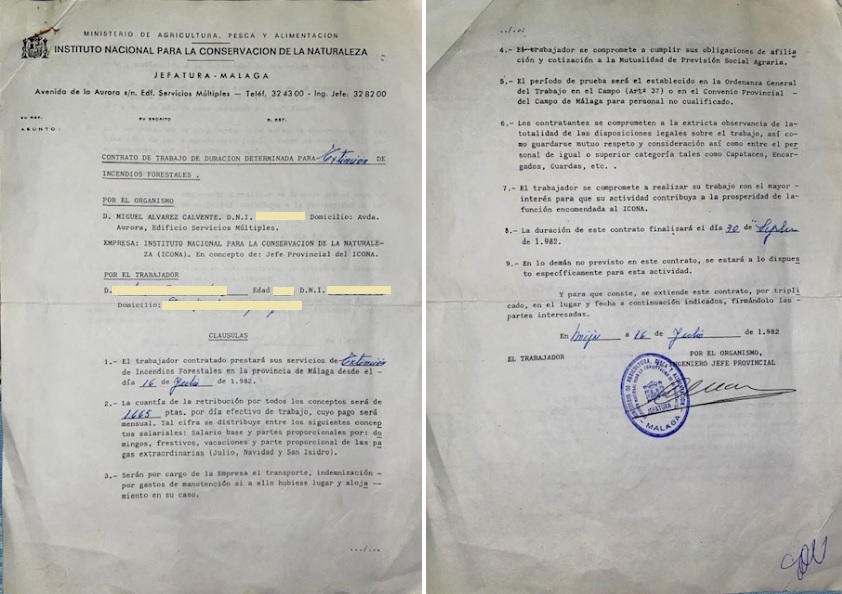 MINISTERIO DE AGRICULTURA, PESCA Y ALIMENTACION
INSTITUTO NACIONAL PARA LA CONSERVACION DE LA NATURALEZA
JEFATURA-MALAGA
Avenida de la Aurora s/n. Edf. Servicios Múltiples — Teléf. 32 43 00 - Ing. Jefe: 32 82 00
SU REF. SU ESCRITO D. REF.
ASUNTO:
CONTRATO DE TRABAJO DE DURACION DETERMINADA PARA Extinción DE
INCENDIOS FORESTALES .
POR EL ORGANISMO
D. MIGUEL ALVAREZ CALVENTE, D.N.I. Domicilio: Avda.
Aurora, Edificio Servicios Múltiples.
EMPRESA: INSTITUTO NACIONAL PARA LA CONSERVACION DE LA NATURALE-
ZA (ICONA). En concepto de: Jefe Provincial del ICONA.
POR EL TRABAJADOR
D. Edad D.N.I.
Domicilio:
CLAUSULAS
1.- El trabajador contratado prestará sus servicios de Extinción
de Incendios Forestales en la provincia de Málaga desde el-
día 16 Julio de 1.982.
2.- La cuantía de la retribución por todos los conceptos será de
1.665 ptas. por día efectivo de trabajo, cuyo pago será
mensual. Tal cifra se distribuye entre los siguientes concep
tos salariales: Salario base y partes proporcionales por: do
mingos, frestivos, vacaciones y parte proporcional de las pa
gas extraordinarias (Julio, Navidad y San Isidro).
3.- Serán por cargo de la Empresa el transporte, indemnización -
por gastos de manutención si a ello hubiese lugar y aloja -
miento en su caso.
.../...
../..
4.- El trabajador se compromete a cumplir sus obligaciones de afilia
ción y cotización a la Mutualidad de Previsión Social Agraria.
5.- El período de prueba será el establecido en la Ordenanza General
del Trabajo en el Campo (Artº 37) o en el Convenio Provincial -
del Campo de Málaga para personal no cualificado.
6.- Los contratantes se comprometen a la extricta observancia de la-
totalidad de las disposiciones legales sobre el trabajo, así co-
mo guardarse mutuo respeto y consideración así como entre el per
sonal de igual o superior categoría tales como Capataces, Encar-
gados, Guardas, etc. .
7.- El trabajador se compromete a realizar su trabajo con el mayor -
interés para que su actividad contribuya a la prosperidad de la-
función encomendada al ICONA.
8.- La duración de este contrato finalizará el día 30 de
de 1.982.
9.- En lo demás no previsto en este contrato, se estará a lo dispues
to específicamente para esta actividad.
Y para que conste, se extiende este contrato, por tripli
cado, en el lugar y fecha a continuación indicados, firmándolo las -
partes interesadas.
En a 16 de Julio de 1.982
EL TRABAJADOR POR EL ORGANISMO,
INGENIERO JEFE PROVINCIAL
JEFATURA
- MALAGA -